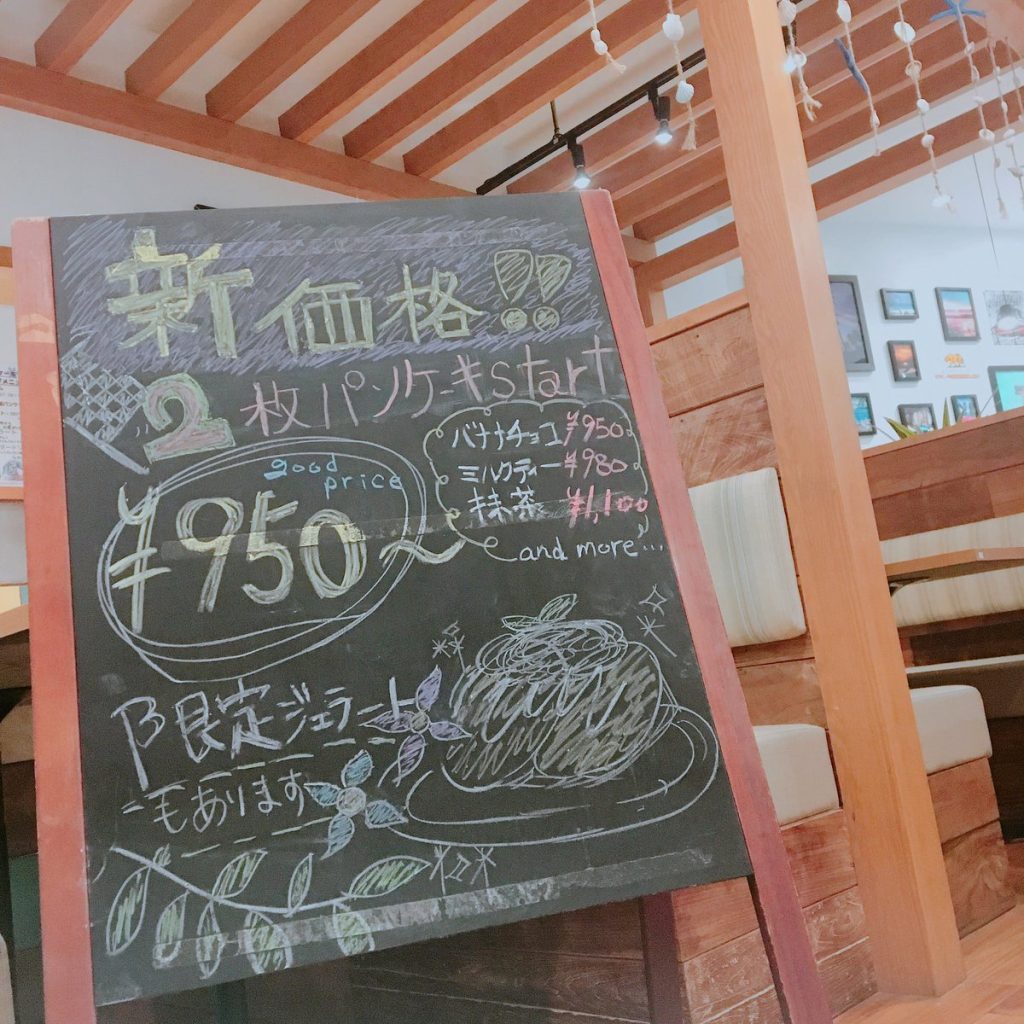 新価格!!
2枚パンケーキstart
good
price
¥950〜
バナナチョコ ¥950
ミルクティー ¥980
抹茶 ¥1,100
and more...
限定ジェラート
もあります